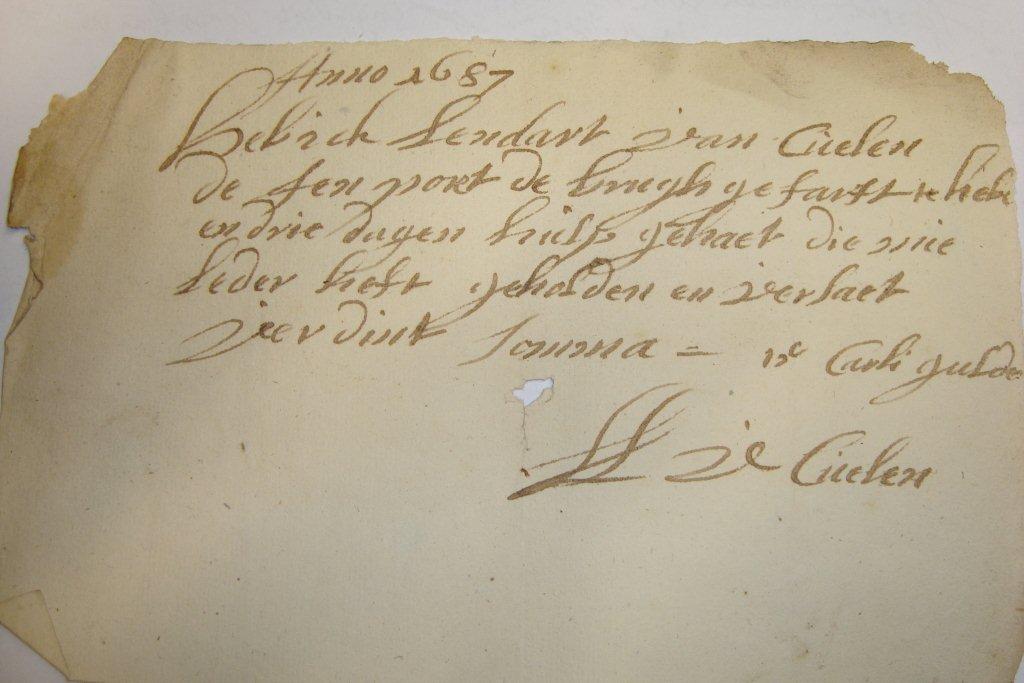 Anno 1687
Heb ick Lendart van Cuelen
de fen port de brugh gefarft te hebe
en drie dagen hulp gehaet die mie
leder heft geholden en verlaet
verdint somma = Carli gulde
L V Cuelen